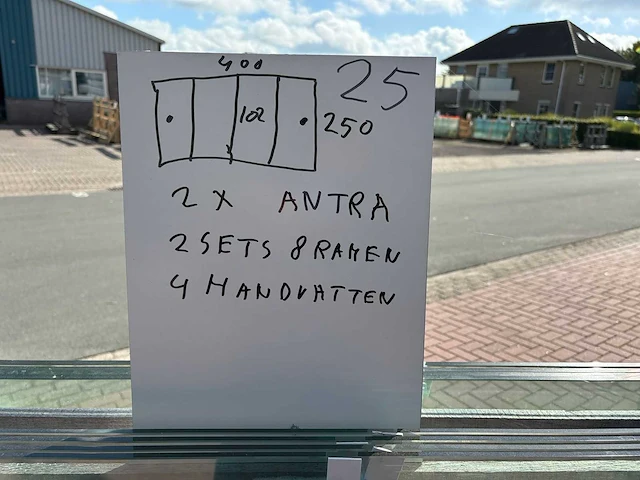 400
25
102
250
2 X ANTRA
2 SETS 8 RAMEN
4 HANDVATTEN